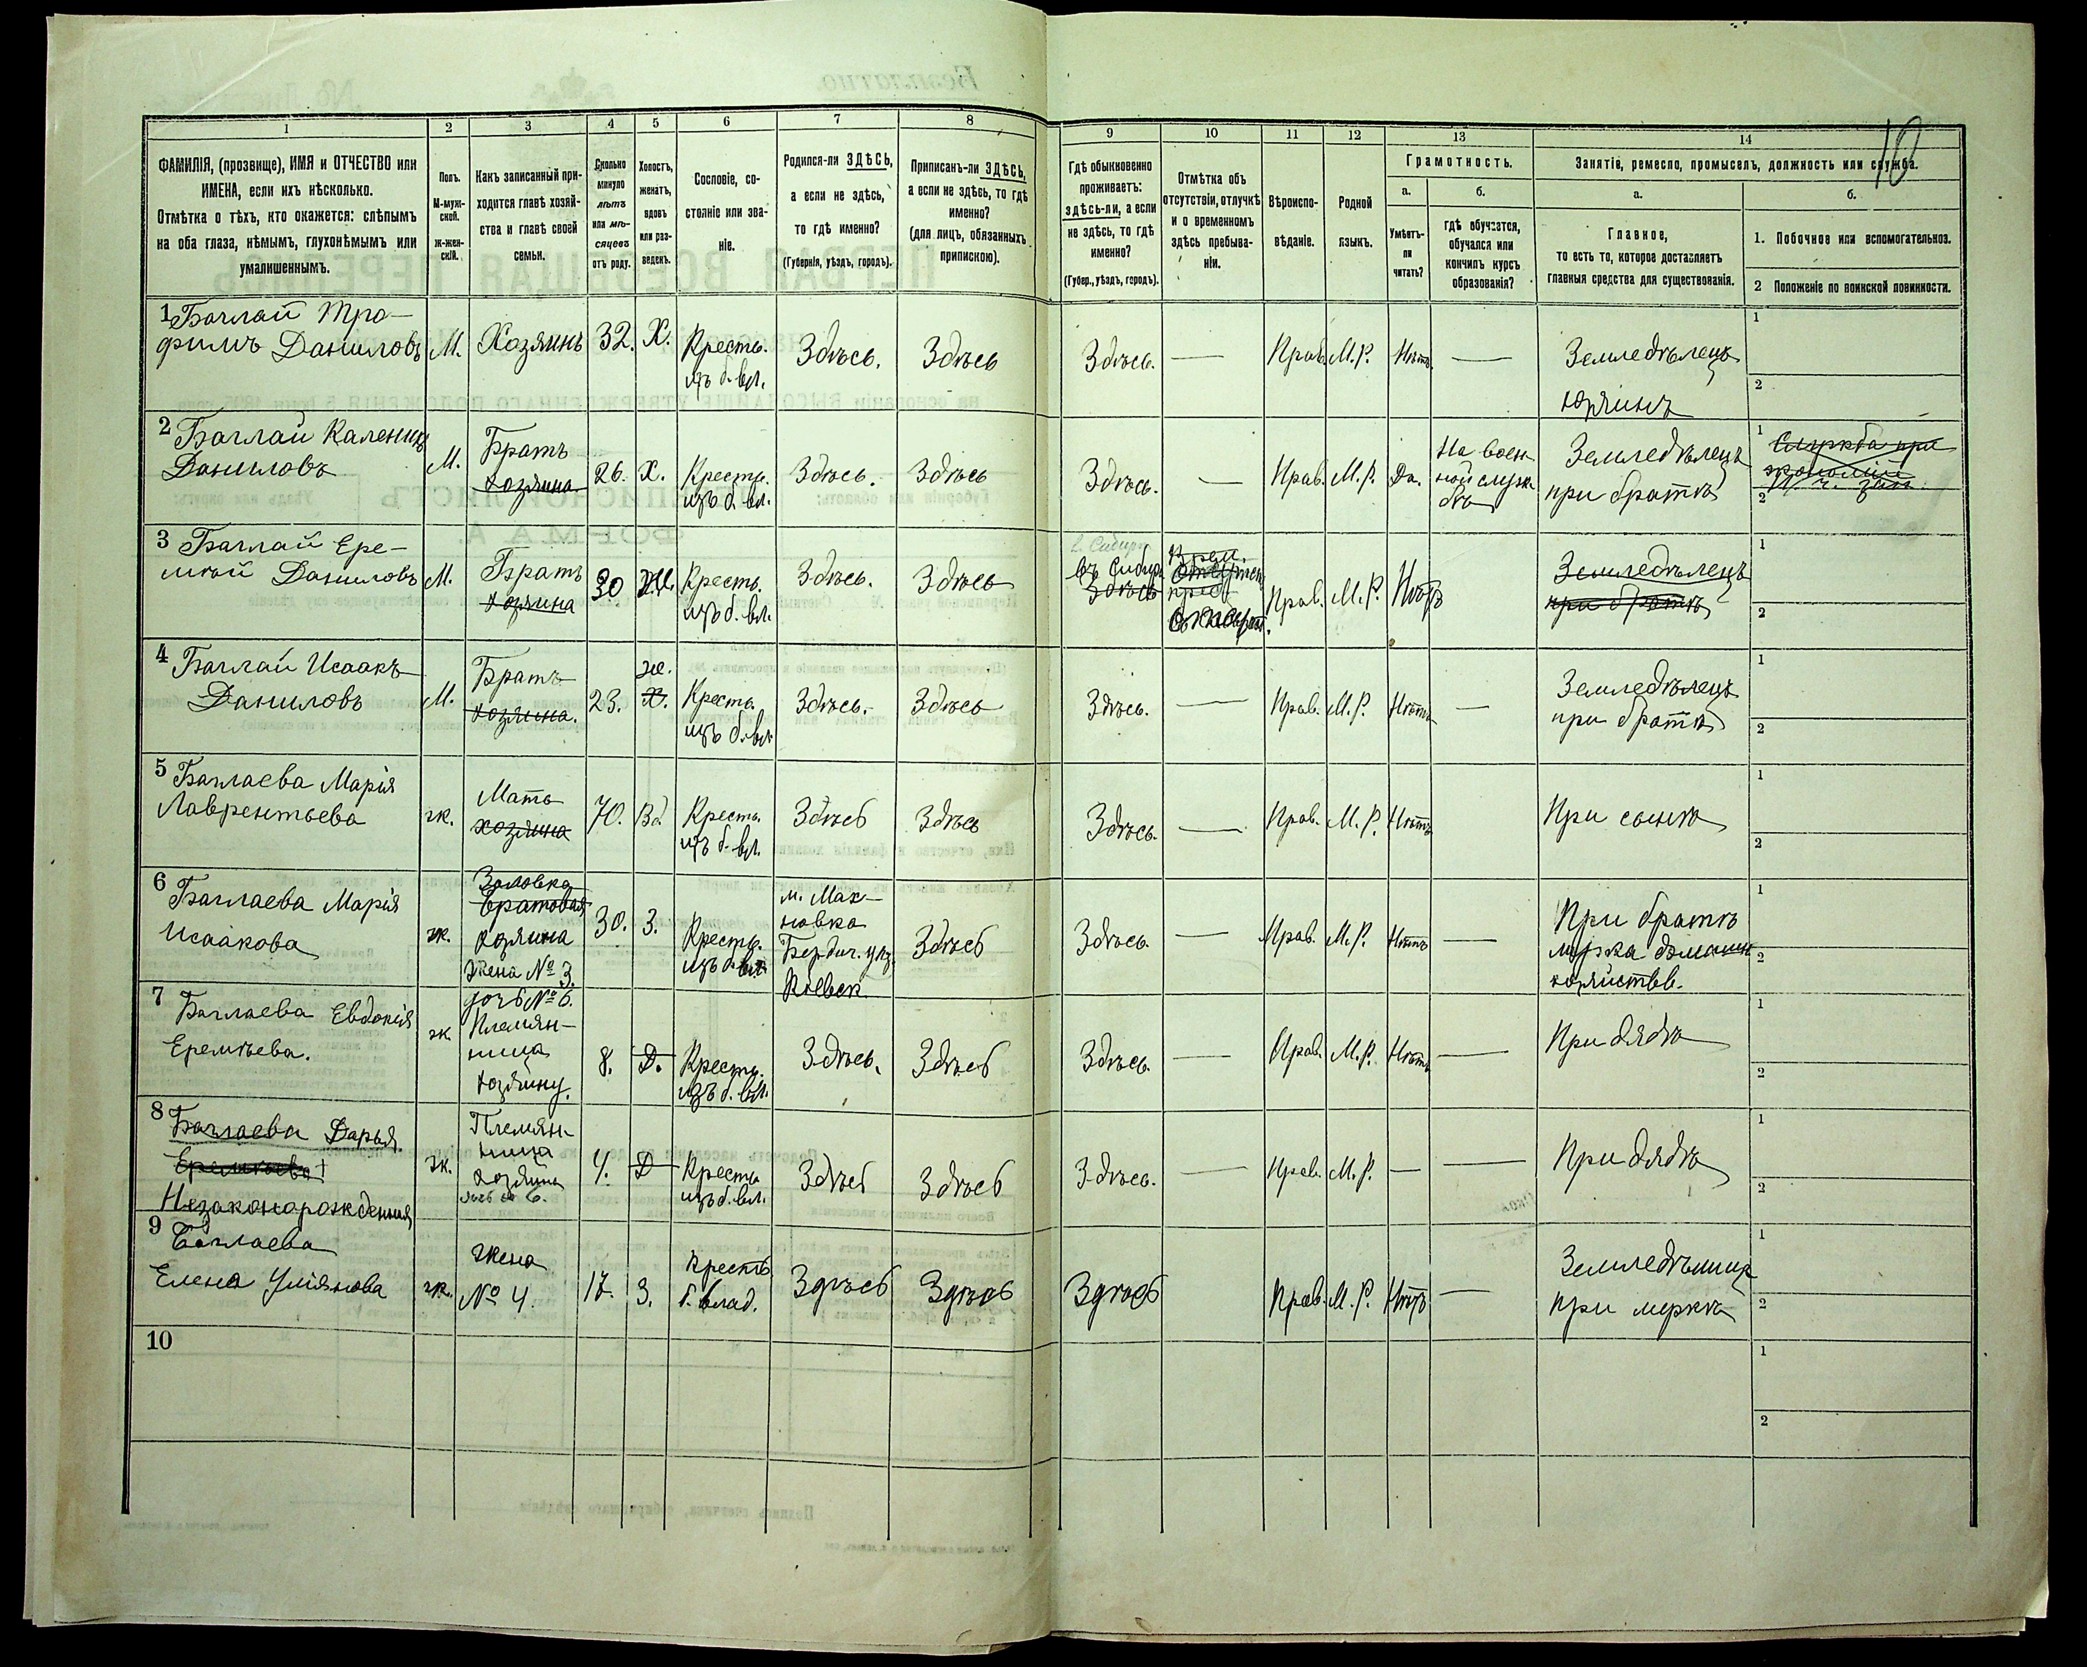 10
1
2
3
4
5
6
7
8
9
10
11
12
13
14
ФАМИЛІЯ, (прозвище), ИМЯ и ОТЧЕСТВО или
ИМЕНА, если ихъ нѣсколько.
Отмѣтка о тѣхъ, кто окажется: слѣпымъ
на оба глаза, нѣмымъ, глухонѣмымъ или
умалишеннымъ.
Полъ.
М-муж-
ской.
ж-жен-
скій.
Какъ записанный при-
ходится главѣ хозяй-
ства и главѣ своей
семьи.
Сколько
минуло
лѣтъ
или мѣ-
сяцевъ
отъ роду.
Холостъ,
женатъ,
вдовъ
или раз-
веденъ.
Сословіе, со-
стояніе или зва-
ніе.
Родился-ли ЗДѢСЬ,
а если не здѣсь,
то гдѣ именно?
(Губернія, уѣздъ, городъ).
Приписанъ-ли ЗДѢСЬ,
а если не здѣсь, то гдѣ
именно?
(для лицъ, обязанныхъ
припискою).
Гдѣ обыкновенно
проживаетъ:
здѣсь-ли, а если
не здѣсь, то гдѣ
именно?
(Губер., уѣздъ, городъ).
Отмѣтка объ
отсутствіи, отлучкѣ
и о временномъ
здѣсь пребыва-
ніи.
Вѣроиспо-
вѣданіе.
Родной
языкъ.
Грамотность.
а.
Умѣетъ-
ли
читать?
б.
гдѣ обучается,
обучался или
кончилъ курсъ
образованія?
Занятіе, ремесло, промыселъ, должность или служба.
а.
Главное,
то есть то, которое доставляетъ
главныя средства для существованія.
б.
1. Побочное или вспомогательное.
2 Положеніе по воинской повинности.
1 Баглай Тро-
фимъ Даниловъ
М.
Хозяинъ
32.
Х.
Кресть.
изъ б. вл.
Здѣсь.
Здѣсь
Здѣсь.
—
Прав.
М. Р.
Нѣтъ
—
Земледѣлецъ
хозяинъ
1
2
2 Баглай Каленикъ
Даниловъ
М.
Братъ
хозяина
26.
Х.
Кресть.
изъ б. вл.
Здѣсь.
Здѣсь
Здѣсь.
—
Прав.
М. Р.
Да.
На воен-
ной служ-
бѣ
Земледѣлецъ
при братѣ
1 Служба при
экономіи
2
3 Баглай Ере-
мѣй Даниловъ
М.
Братъ
хозяина
30
Кресть.
изъ б. вл.
Здѣсь.
Здѣсь
в. Сибирь
въ Сибирь
Здѣсь
Прав.
М. Р.
Нѣтъ
Земледѣлецъ
при братѣ
1
2
4 Баглай Исаакъ
Даниловъ
М.
Братъ
хозяина.
23.
ж.
Х.
Кресть.
изъ б. вл.
Здѣсь.
Здѣсь
Здѣсь.
—
Прав.
М. Р.
Нѣтъ
—
Земледѣлецъ
при братѣ
1
2
5 Баглаева Марія
Лаврентьева
ж.
Мать
хозяина
70.
Вд
Кресть.
изъ б. вл.
Здѣсь
Здѣсь
Здѣсь.
—
Прав.
М. Р.
Нѣтъ
При сынѣ
1
2
6 Баглаева Марія
Исаакова
ж.
Золовка
Братовая
хозяина
Жена № 3.
30.
З.
Кресть.
изъ б. вл.
м. Мах-
новка
Бердич. уѣз.
Кіевск.
Здѣсь
Здѣсь.
—
Прав.
М. Р.
Нѣтъ
—
При братѣ
мужа домашн
хозяйств.
1
2
7 Баглаева Евдокія
Еремѣева.
ж.
дочь № 6.
Племян-
ница
хозяину.
8.
Д.
Кресть.
изъ б. вл.
Здѣсь.
Здѣсь
Здѣсь.
—
Прав.
М. Р.
Нѣтъ
—
При дядѣ
1
2
8 Баглаева Дарья.
Еремѣева
Незаконорожденная
ж.
Племян-
ница
хозяина
дочь № 6.
4.
Д
Кресть.
изъ б. вл.
Здѣсь
Здѣсь
Здѣсь.
Прав.
М. Р.
—
—
При дядѣ
1
2
9 Баглаева
Елена Уліянова
ж.
Жена
№ 4.
17.
З.
Кресть
б. влад.
Здѣсь
Здѣсь
Здѣсь
Прав.
М. Р.
Нѣтъ
—
Земледѣлица
при мужѣ
1
2
10
1
2